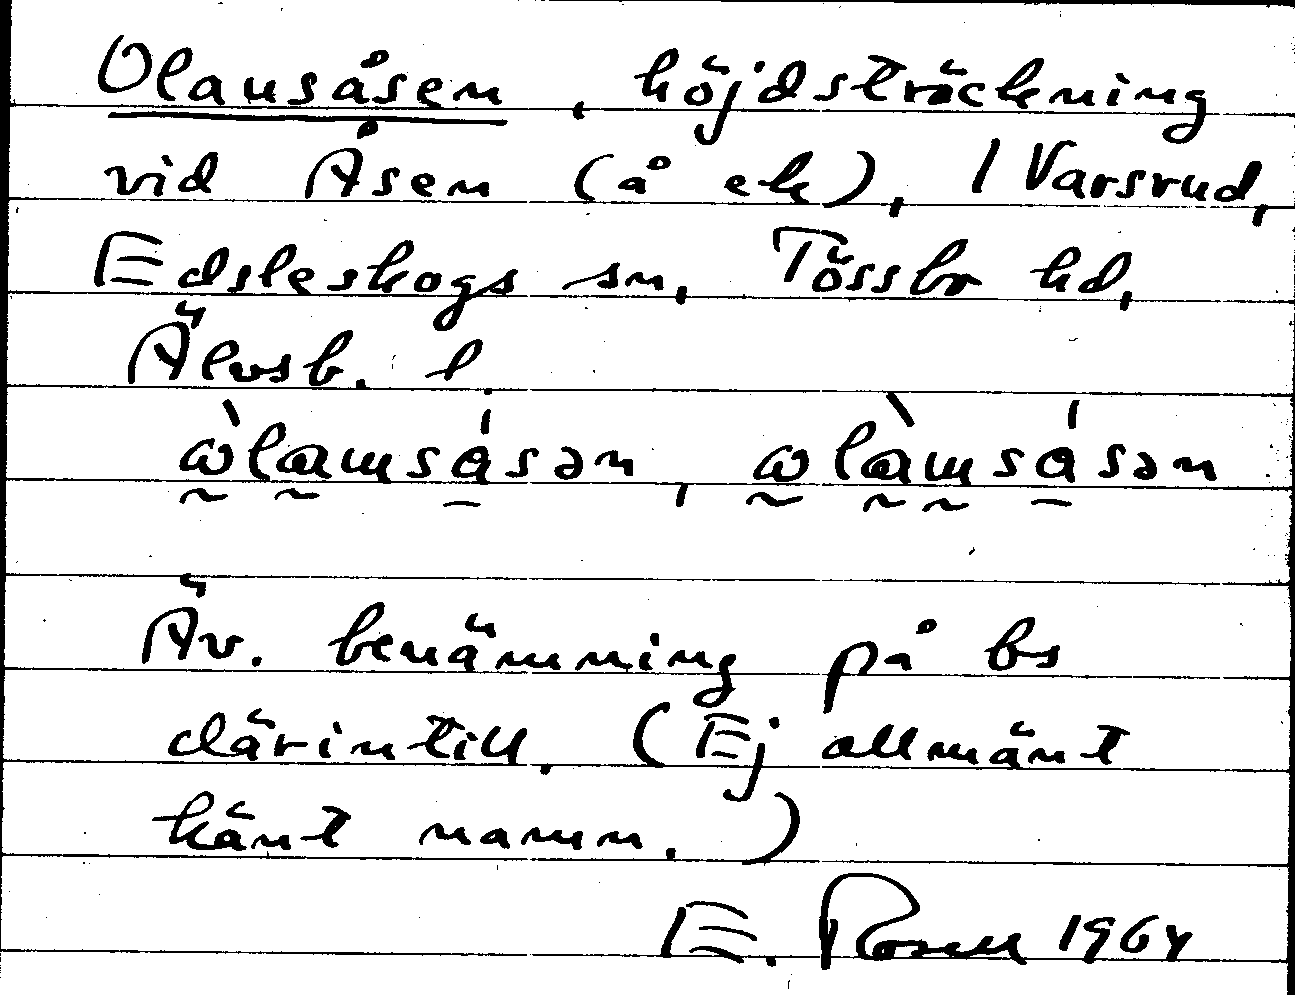 Olausåsen, höjdsträckning
vid Åsen (å ek), 1 Varsrud,
Edsleskogs sn, Tössbo hd,
Älvsb. l.
ὼlaɯsásən, ωlàɯsásən
Äv. benämning på bs
därintill. (Ej allmänt
känt namn.)
E. Rosell 1964